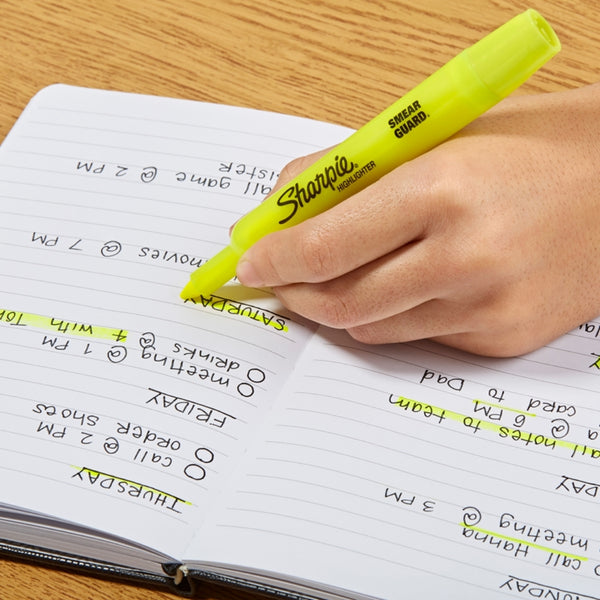 Sharpie®
HIGHLIGHTER
SMEAR
GUARD®
THURSDAY
call @ 2 PM
order shoes
FRIDAY
meeting @ 1 PM
drinks @ 4 with
SATURDAY
movies @ 7 PM
game @ 2 PM
sister
call Hanna
meeting @ 3 PM
notes to team
@ 6 PM
card to Dad